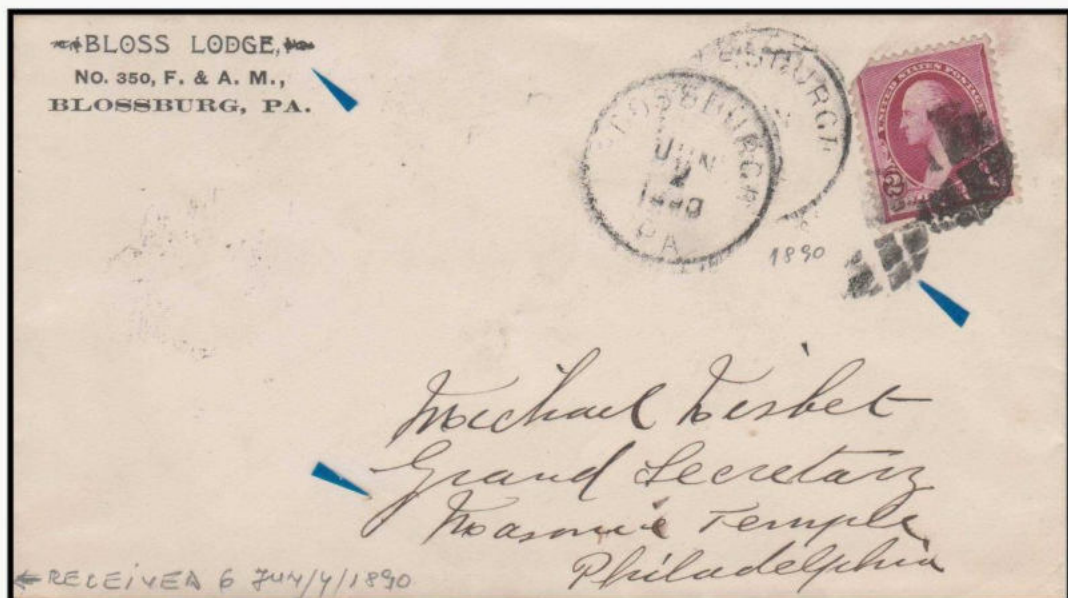 BLOSS LODGE,
No. 350, F. & A. M.,
BLOSSBURG, PA.
SSBURG
BLOSSBURG
JUN
2
1890
PA.
UNITED STATES POSTAGE
2
1890
Michael Nisbet
Grand Secretary
Masonic Temple
Philadelphia
RECEIVED 6
1890